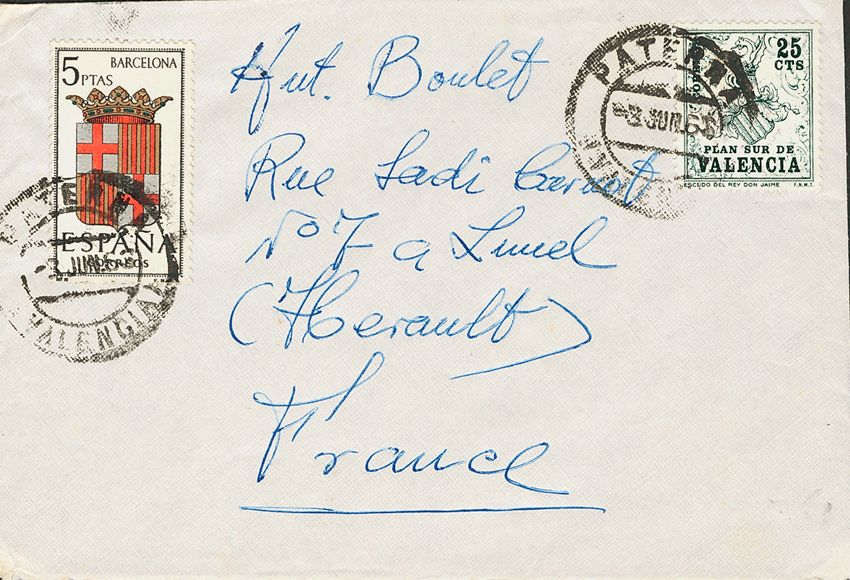 5 PTAS
BARCELONA
ESPAÑA
CORREOS
PATERNA
JUN.6
VALENCIA
Aut. Boulet
Rue Sadi Carnot
Nº 7 a Lunel
(Herault)
France
PATERNA
-3 JUN.6
25 CTS
PLAN SUR DE
VALENCIA
ESCUDO DEL REY DON JAIME F.N.M.T.